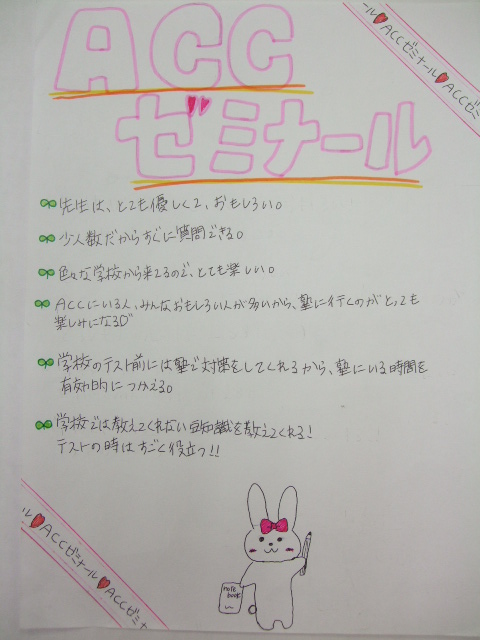 ACC
ゼミナール
ール♥ACCゼミナール♥ACCゼミ
先生は、とても優しくて、おもしろい。
少人数だからすぐに質問できる。
色々な学校から来てるので、とても楽しい。
ACCにいる人、みんなおもしろい人が多いから、塾に行くのがとっても
楽しみになるD"
学校のテスト前には塾で対策をしてくれるから、塾にいる時間を
有効的につかえる。
学校では教えてくれない豆知識を教えてくれる!
テストの時はすごく役立つ!!
note
book
ール♥ACCゼミナール♥ACCゼミナ